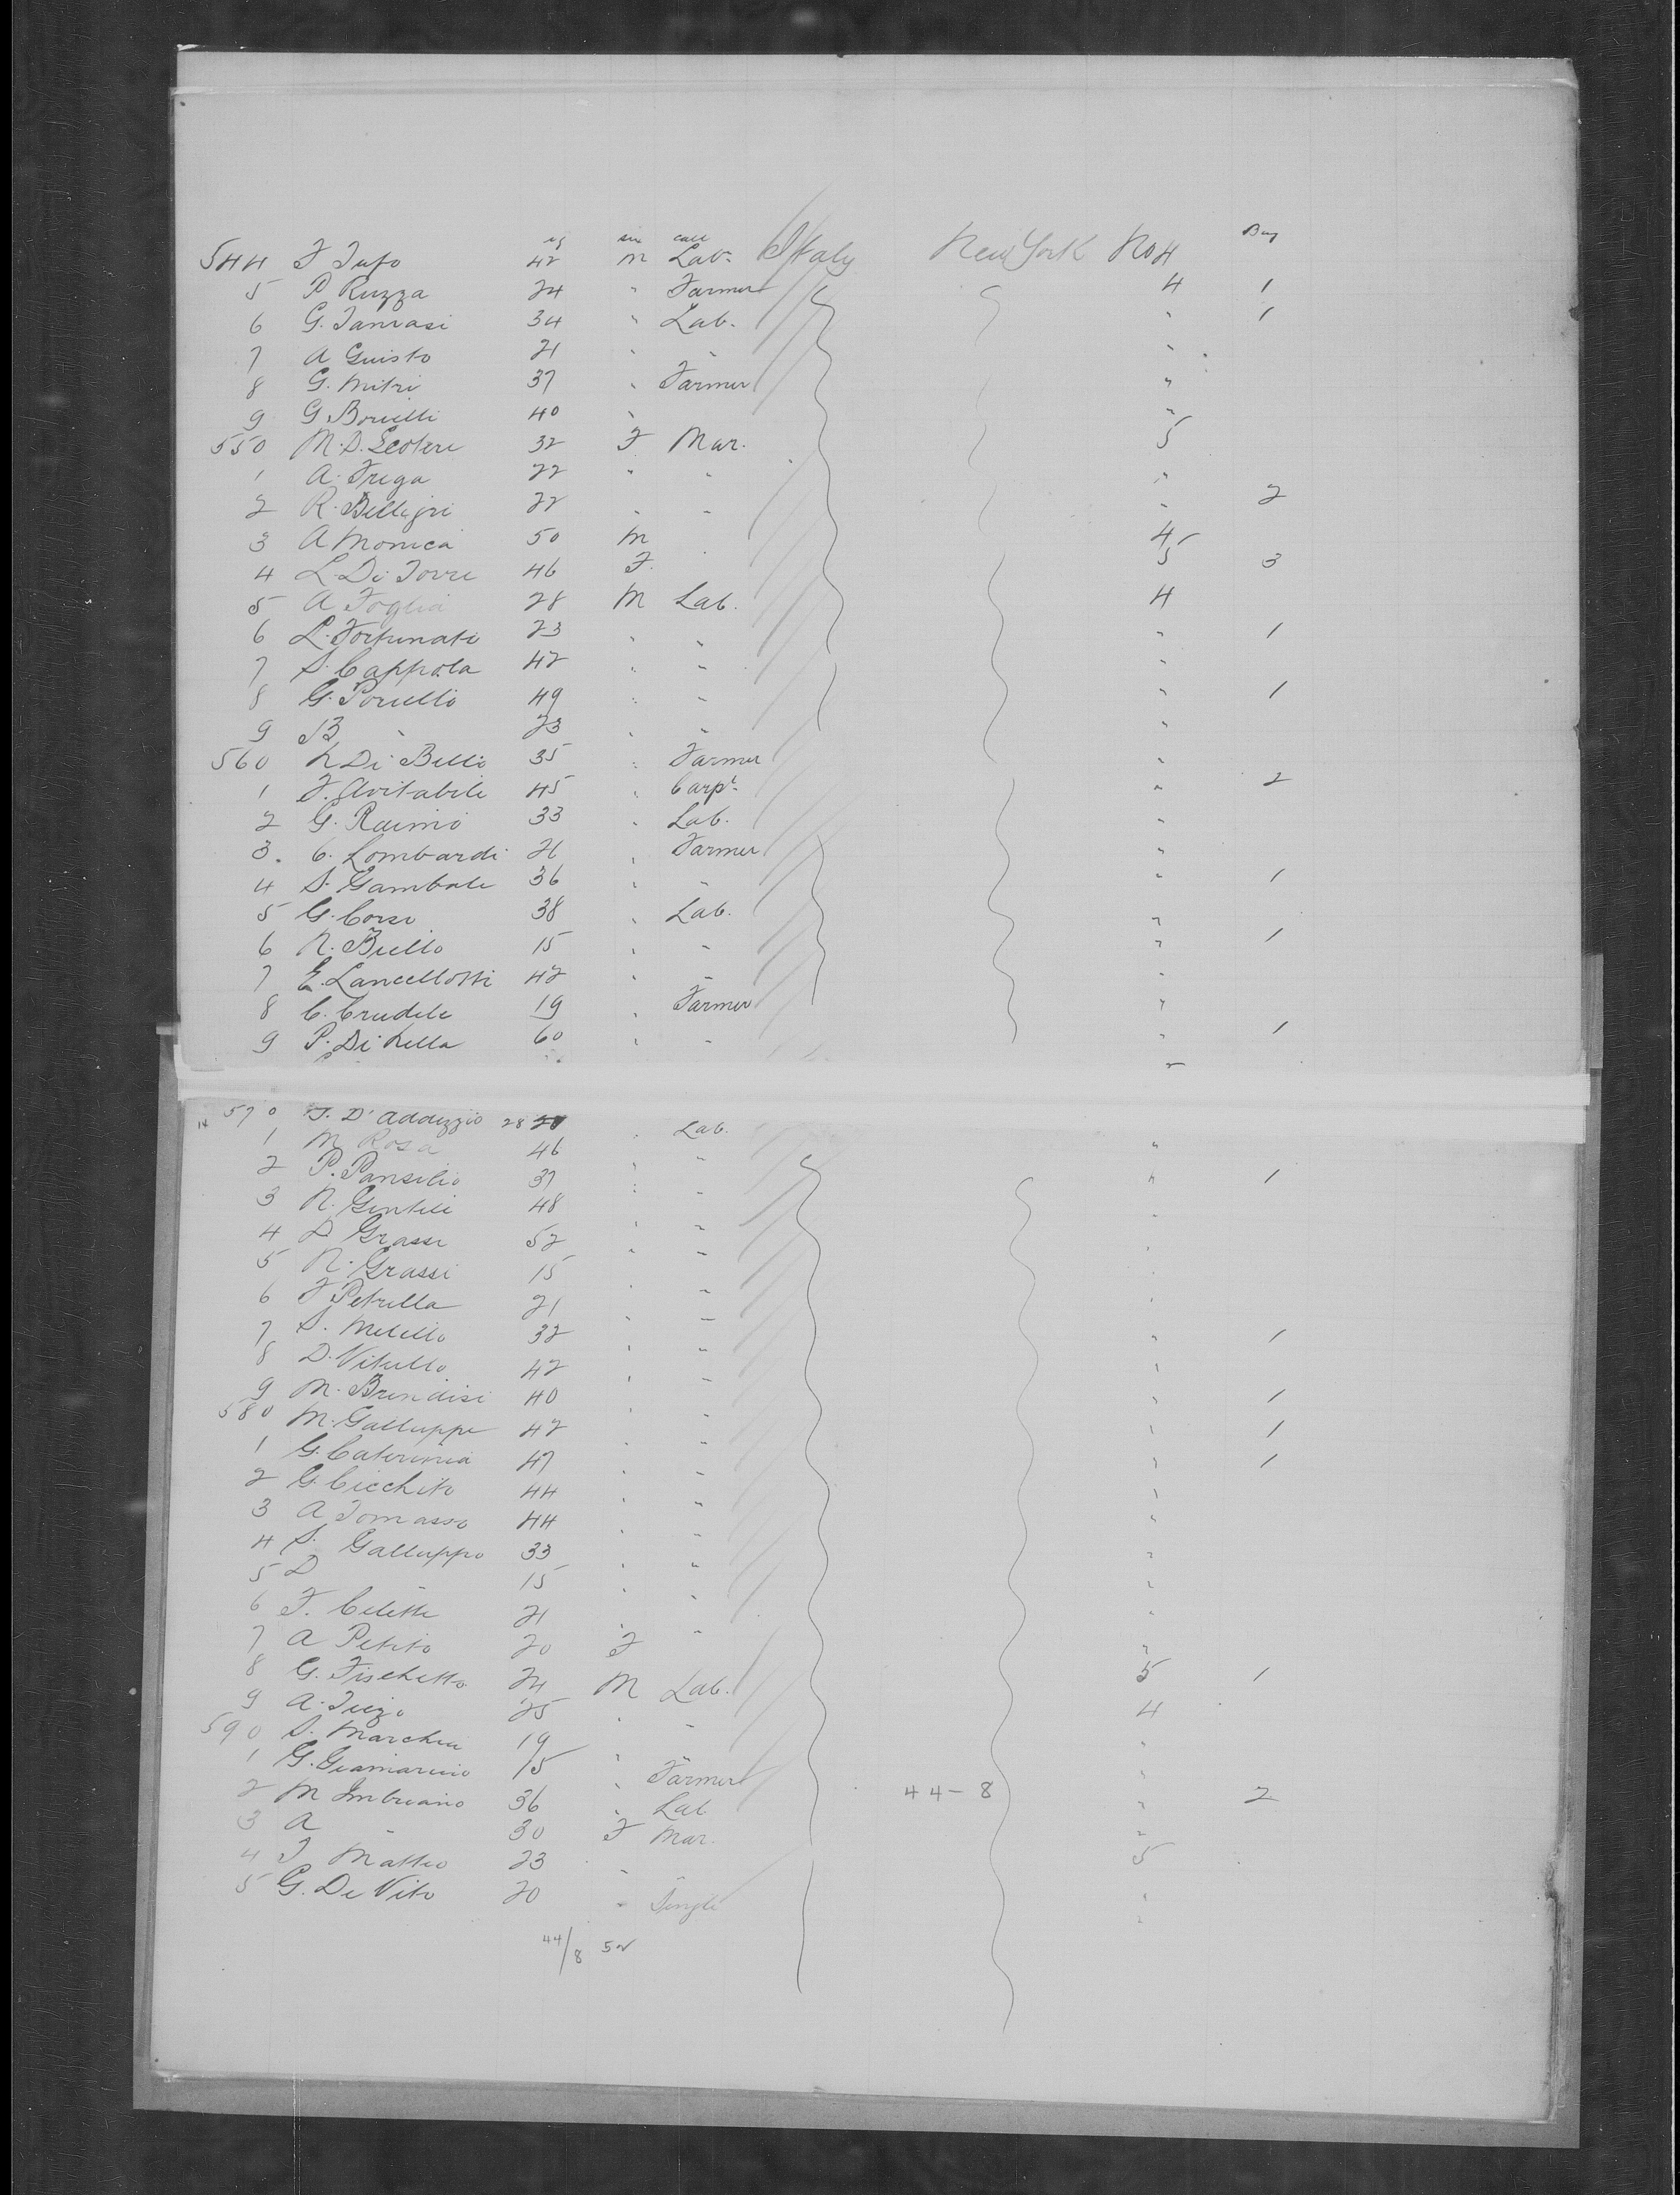 ag sex call Bag
544 F Tufo 42 M Labr Italy New York No 4
5 P Ruzza 24 " Farmer 4 1
6 G. Tanrasi 34 " Lab. " 1
7 A Guisto 21 " " "
8 G. Mitri 37 " Farmer "
9 G Borielli 40 " "
550 M. D. Leoteri 32 F Mar. 5
1 A. Friga 22 " " "
2 R. Billigri 22 " " " 2
3 A Monica 50 M " 4
4 L. Di Torre 46 F. 5 3
5 A Foglia 28 M Lab. 4
6 L. Fortunato 23 " " " 1
7 S. Cappola 42 " " "
8 G. Poriello 49 " " " 1
9 B " 23 " " "
560 N Di Bello 35 " Farmer "
1 F. Avitabile 45 " Carpt. " 2
2 G. Raimo 33 " Lab. "
3. C. Lombardi 21 " Farmer "
4 S. Gambale 36 " " " 1
5 G. Corso 38 " Lab. "
6 N. Biello 15 " " " 1
7 E. Lancellotti 42 " " "
8 C. Crudele 19 " Farmer "
9 P. Di Nella 60 " " " 1
570 T. D'Addezzio 28 Lab.
1 M Rosa 46 " " "
2 P. Pansilio 37 " " " 1
3 N. Gentili 48 " " "
4 D Grassi 52 " " "
5 N. Grassi 15 " "
6 F Petrella 21 " "
7 S. Melillo 32 " " " 1
8 D. Vitullo 42 " " "
9 M. Brindisi 40 " " " 1
580 M. Galluppi 42 " " " 1
1 G. Caterinia 47 " " " 1
2 G. Cicchito 44 " " "
3 A Tomasso 44 " " "
4 S. Galluppo 33 " " "
5 D " 15 " " "
6 F. Celitti 21 " " "
7 A Petito 20 F "
8 G. Fischetto 24 M Lab. 5 1
9 A. Iuzo 25 " " 4
590 S. Marchiu 19 " " "
1 G. Giamarino 15 " Farmer "
2 M Imbriano 36 " Lab 44-8 " 2
3 A " 30 F Mar. "
4 T Matteo 23 " " 5
5 G. De Vito 20 " Single "
44/8 52